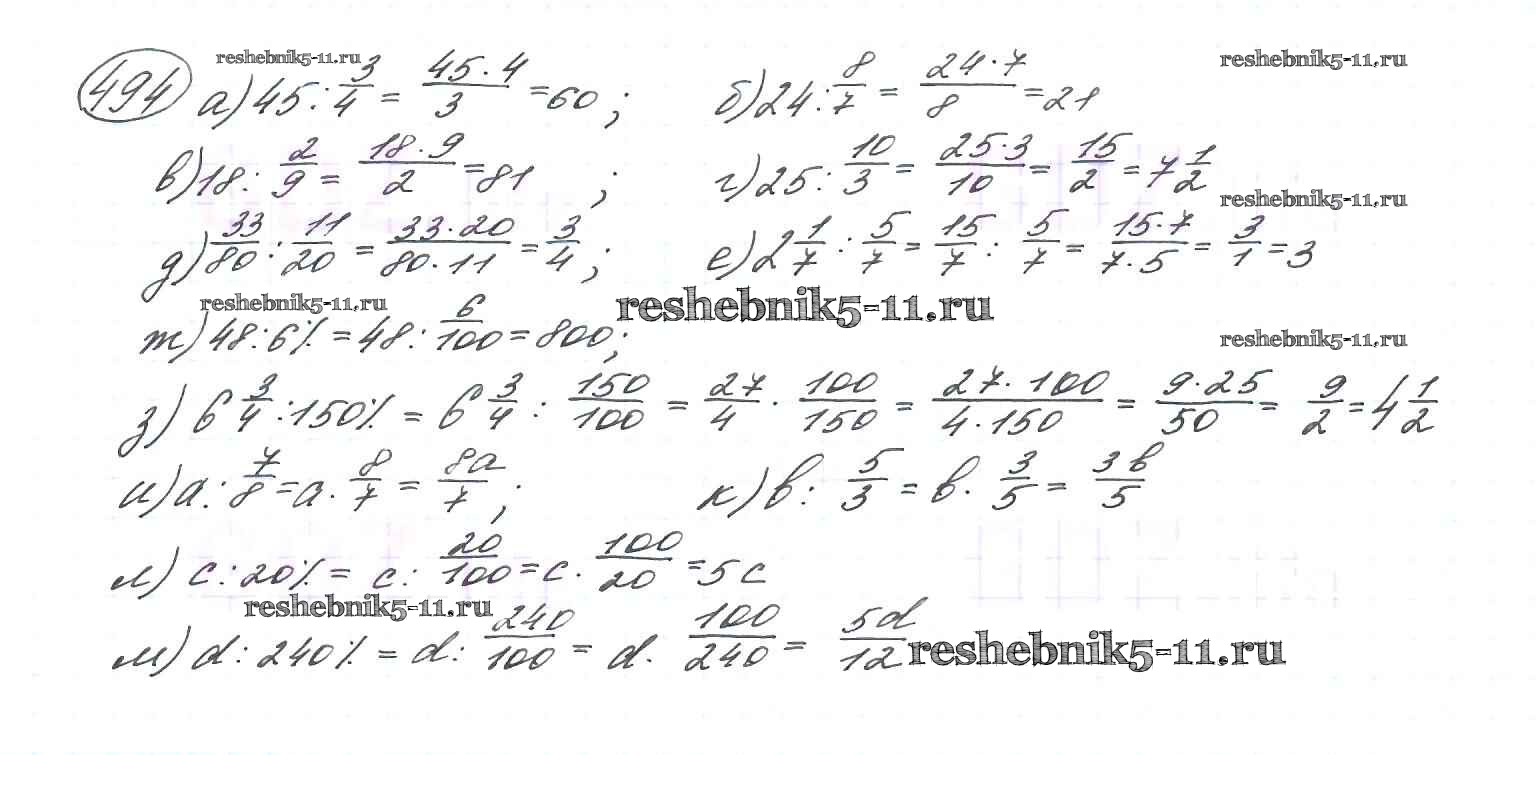 reshebnik5-11.ru reshebnik5-11.ru
494 а) 45 : 3/4 = 45·4/3 = 60 ; б) 24 : 8/7 = 24·7/8 = 21
в) 18 : 2/9 = 18·9/2 = 81 ; г) 25 : 10/3 = 25·3/10 = 15/2 = 7 1/2
reshebnik5-11.ru
д) 33/80 : 11/20 = 33·20/80·11 = 3/4 ; е) 2 1/7 : 5/7 = 15/7 : 5/7 = 15·7/7·5 = 3/1 = 3
reshebnik5-11.ru reshebnik5-11.ru
ж) 48 : 6% = 48 : 6/100 = 800 ;
reshebnik5-11.ru
з) 6 3/4 : 150% = 6 3/4 : 150/100 = 27/4 · 100/150 = 27·100/4·150 = 9·25/50 = 9/2 = 4 1/2
и) a : 7/8 = a · 8/7 = 8a/7 ; к) b : 5/3 = b · 3/5 = 3b/5
л) c : 20% = c : 20/100 = c · 100/20 = 5c
reshebnik5-11.ru
м) d : 240% = d : 240/100 = d · 100/240 = 5d/12 reshebnik5-11.ru